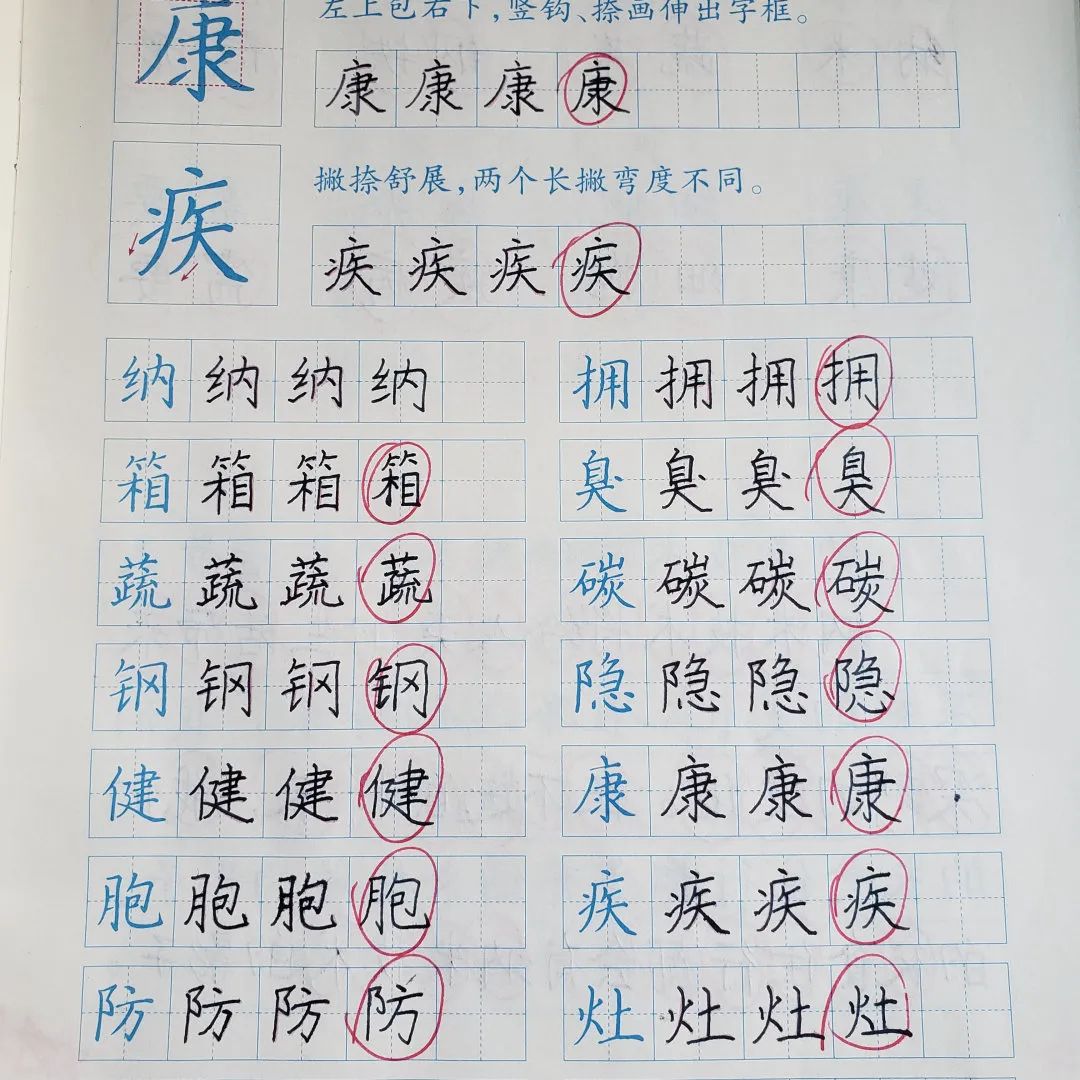 左上包右下，竖钩、捺画伸出字框。
康 康 康 康 康
撇捺舒展，两个长撇弯度不同。
疾 疾 疾 疾 疾
纳 纳 纳 纳 拥 拥 拥 拥
箱 箱 箱 箱 臭 臭 臭 臭
蔬 蔬 蔬 蔬 碳 碳 碳 碳
钢 钢 钢 钢 隐 隐 隐 隐
健 健 健 健 康 康 康 康
胞 胞 胞 胞 疾 疾 疾 疾
防 防 防 防 灶 灶 灶 灶